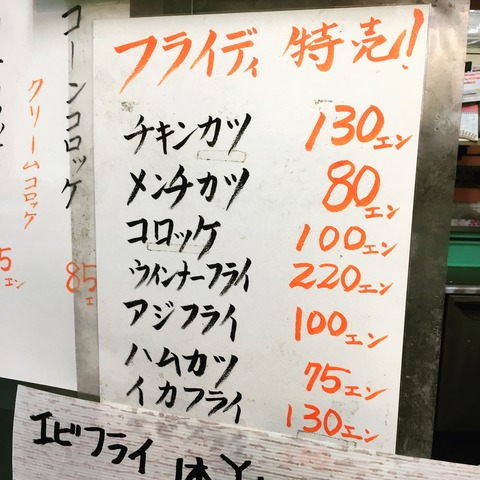 フライディ 特売!
チキンカツ 130エン
メンチカツ 80エン
コロッケ 100エン
ウインナーフライ 220エン
アジフライ 100エン
ハムカツ 75エン
イカフライ 130エン
コーンコロッケ 85エン
クリームコロッケ 5エン
エビフライ 1本 ¥